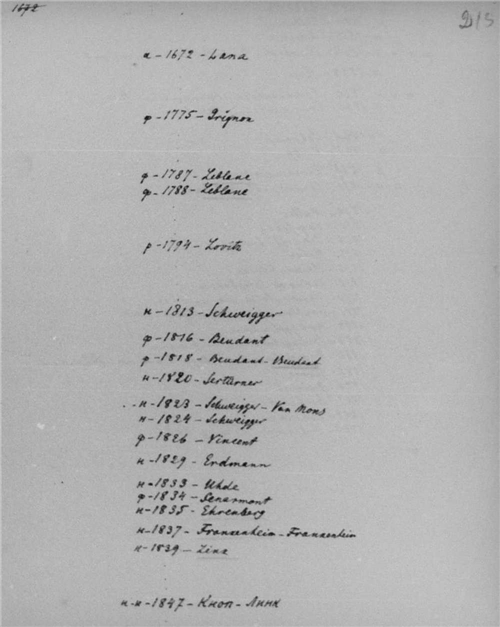 1672
213
а - 1672 - Lana
ф - 1775 - Grignon
ф - 1787 - Leblanc
ф - 1788 - Leblanc
р - 1794 - Lovitz
н - 1813 - Schweigger
ф - 1816 - Beudant
ф - 1818 - Beudant - Beudant
н - 1820 - Serturner
н - 1823 - Schweigger - Van Mons
н - 1824 - Schweigger
ф - 1826 - Vincent
н - 1829 - Erdmann
н - 1833 - Uhde
ф - 1834 - Senarmont
н - 1835 - Ehrenberg
н - 1837 - Frankenheim - Frankenheim
н - 1839 -
н - н - 1847 - Кноп - Линк